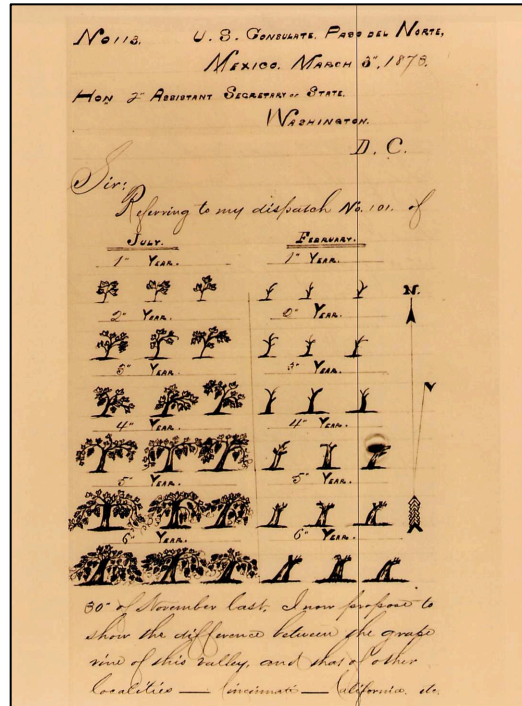 No 113. U. S. Consulate. Paso del Norte,
Mexico. March 3", 1878.
Hon 2" Assistant Secretary of State.
Washington.
D. C.
Sir:
Referring to my dispatch No. 101. of
July. February.
1" Year. 1" Year.
N.
2" Year. 2" Year.
3" Year. 3" Year.
4" Year. 4" Year.
5" Year. 5" Year.
6" Year. 6" Year.
30" of November last. I now propose to
show the difference between the grape
vine of this valley, and that of other
localities — Cincinnati — California, etc.